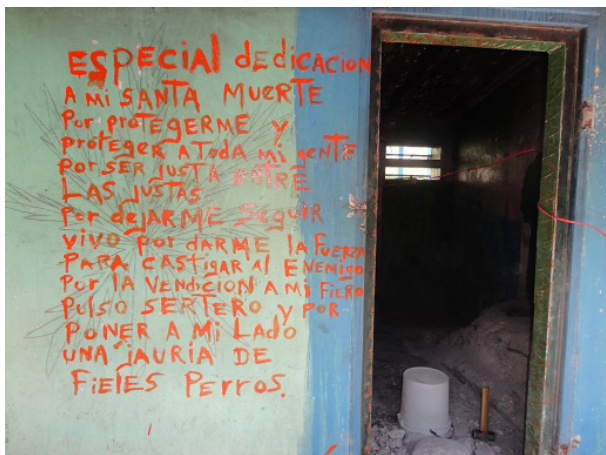 ESPECIAL dEdicACION
A Mi SANTA MUERTE
Por protEgERME y
protEgER ATodA mi gENTE
Por SER JUSTA ENTRE
LAS JUSTAS
Por dEjARME SEguiR
vivo por dARME lA FuERZA
PARA CASTigAR Al ENEMigo
Por lA VENdiCiON A Mi FiERO
PulSO SERTERO y POR
PONER A Mi LADO
UNA JAURiA DE
FiELES PERROS.